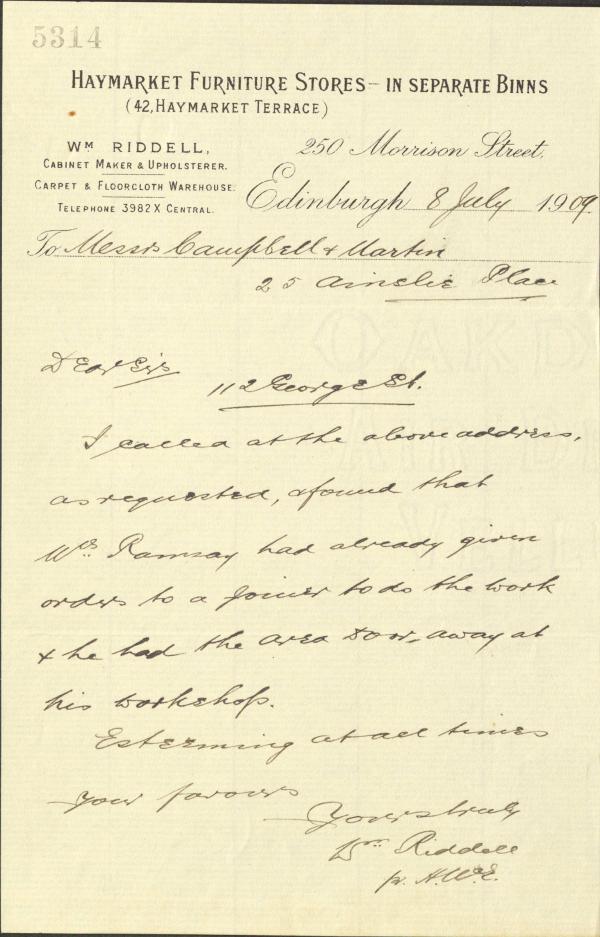 5314
HAYMARKET FURNITURE STORES - IN SEPARATE BINNS
(42, HAYMARKET TERRACE)
WM RIDDELL,
CABINET MAKER & UPHOLSTERER.
CARPET & FLOORCLOTH WAREHOUSE.
TELEPHONE 3982X CENTRAL.
250 Morrison Street.
Edinburgh 8 July 1909.
To Messrs Campbell & Martin
25 Ainslie Place
Dear Sirs
112 George St.
I called at the above address,
as requested, & found that
Ramsay had already given
orders to a joiner to do the work
& he had the area Door, away at
his workshop.
Esterming at all times
your favours
Yours truly
Wm Riddell